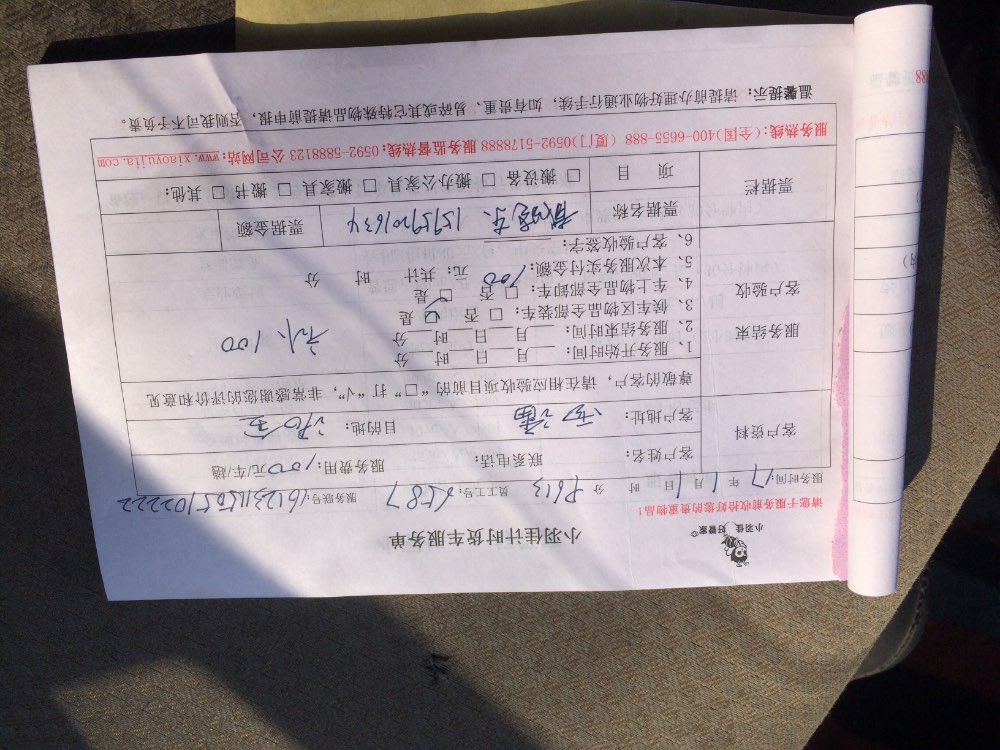 小羽佳 好管家
小羽佳计时货车服务单
请您于服务前收拾好您的贵重物品！
服务时间：17年1月1日 时 分 P613 员工工号：6587 服务账号：
客户资料
客户姓名： 联系电话： 服务费用：100元/车/趟
客户地址： 目的地：
尊敬的客户，请在相应验收项目前的“□”打“√”，非常感谢您的评价和意见
服务结束
客户验收
1、服务开始时间：___月___日___时___分
2、服务结束时间：___月___日___时___分
3、候车区物品全部车装： □ 否 □ 是
4、车上物品全部卸车： □ 否 □ 是
5、本次服务实付金额：100 元；共计 时 分
6、客户验收签字：
100
票据栏
票据名称 15959201634 票据金额
项 目 □ 搬设备 □ 搬办公家具 □ 搬家具 □ 搬书 □ 其他：
服务热线：(全国)400-6655-888 (厦门)0592-5178888 服务监督热线：0592-5888123 公司网站：www.xiaoyujia.com
温馨提示：请提前办理好物业通行手续，如有贵重、易碎或其它特殊物品请提前申报，否则我司不予负责。